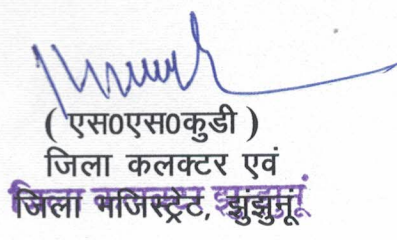 ( एस0एस0कुडी )
जिला कलक्टर एवं
जिला मजिस्ट्रेट, झुंझुनूं